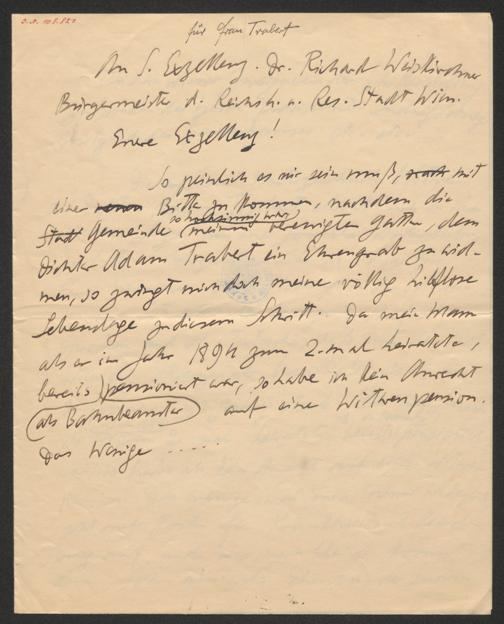 für Frau Trabert
An S. Exzellenz. Dr. Richard Weiskirchner
Bürgermeister d. Reichsh. u. Res. Stadt Wien.
Eure Exzellenz!
So peinlich es mir sein muß, mit
einer neuen Bitte zu kommen, nachdem die
so hochsinnig war,
Stadt Gemeinde meinem verewigten Gatten, dem
Dichter Adam Trabert ein Ehrengrab zu wid-
men, so zwingt mich doch meine völlig hilflose
Lebenslage zu diesem Schritt. Da mein Mann
als er im Jahr 1894 zum 2. mal heiratete,
bereits pensioniert war, so habe ich kein Anrecht
als Bahnbeamter auf eine Witwenpension.
Das Wenige .....